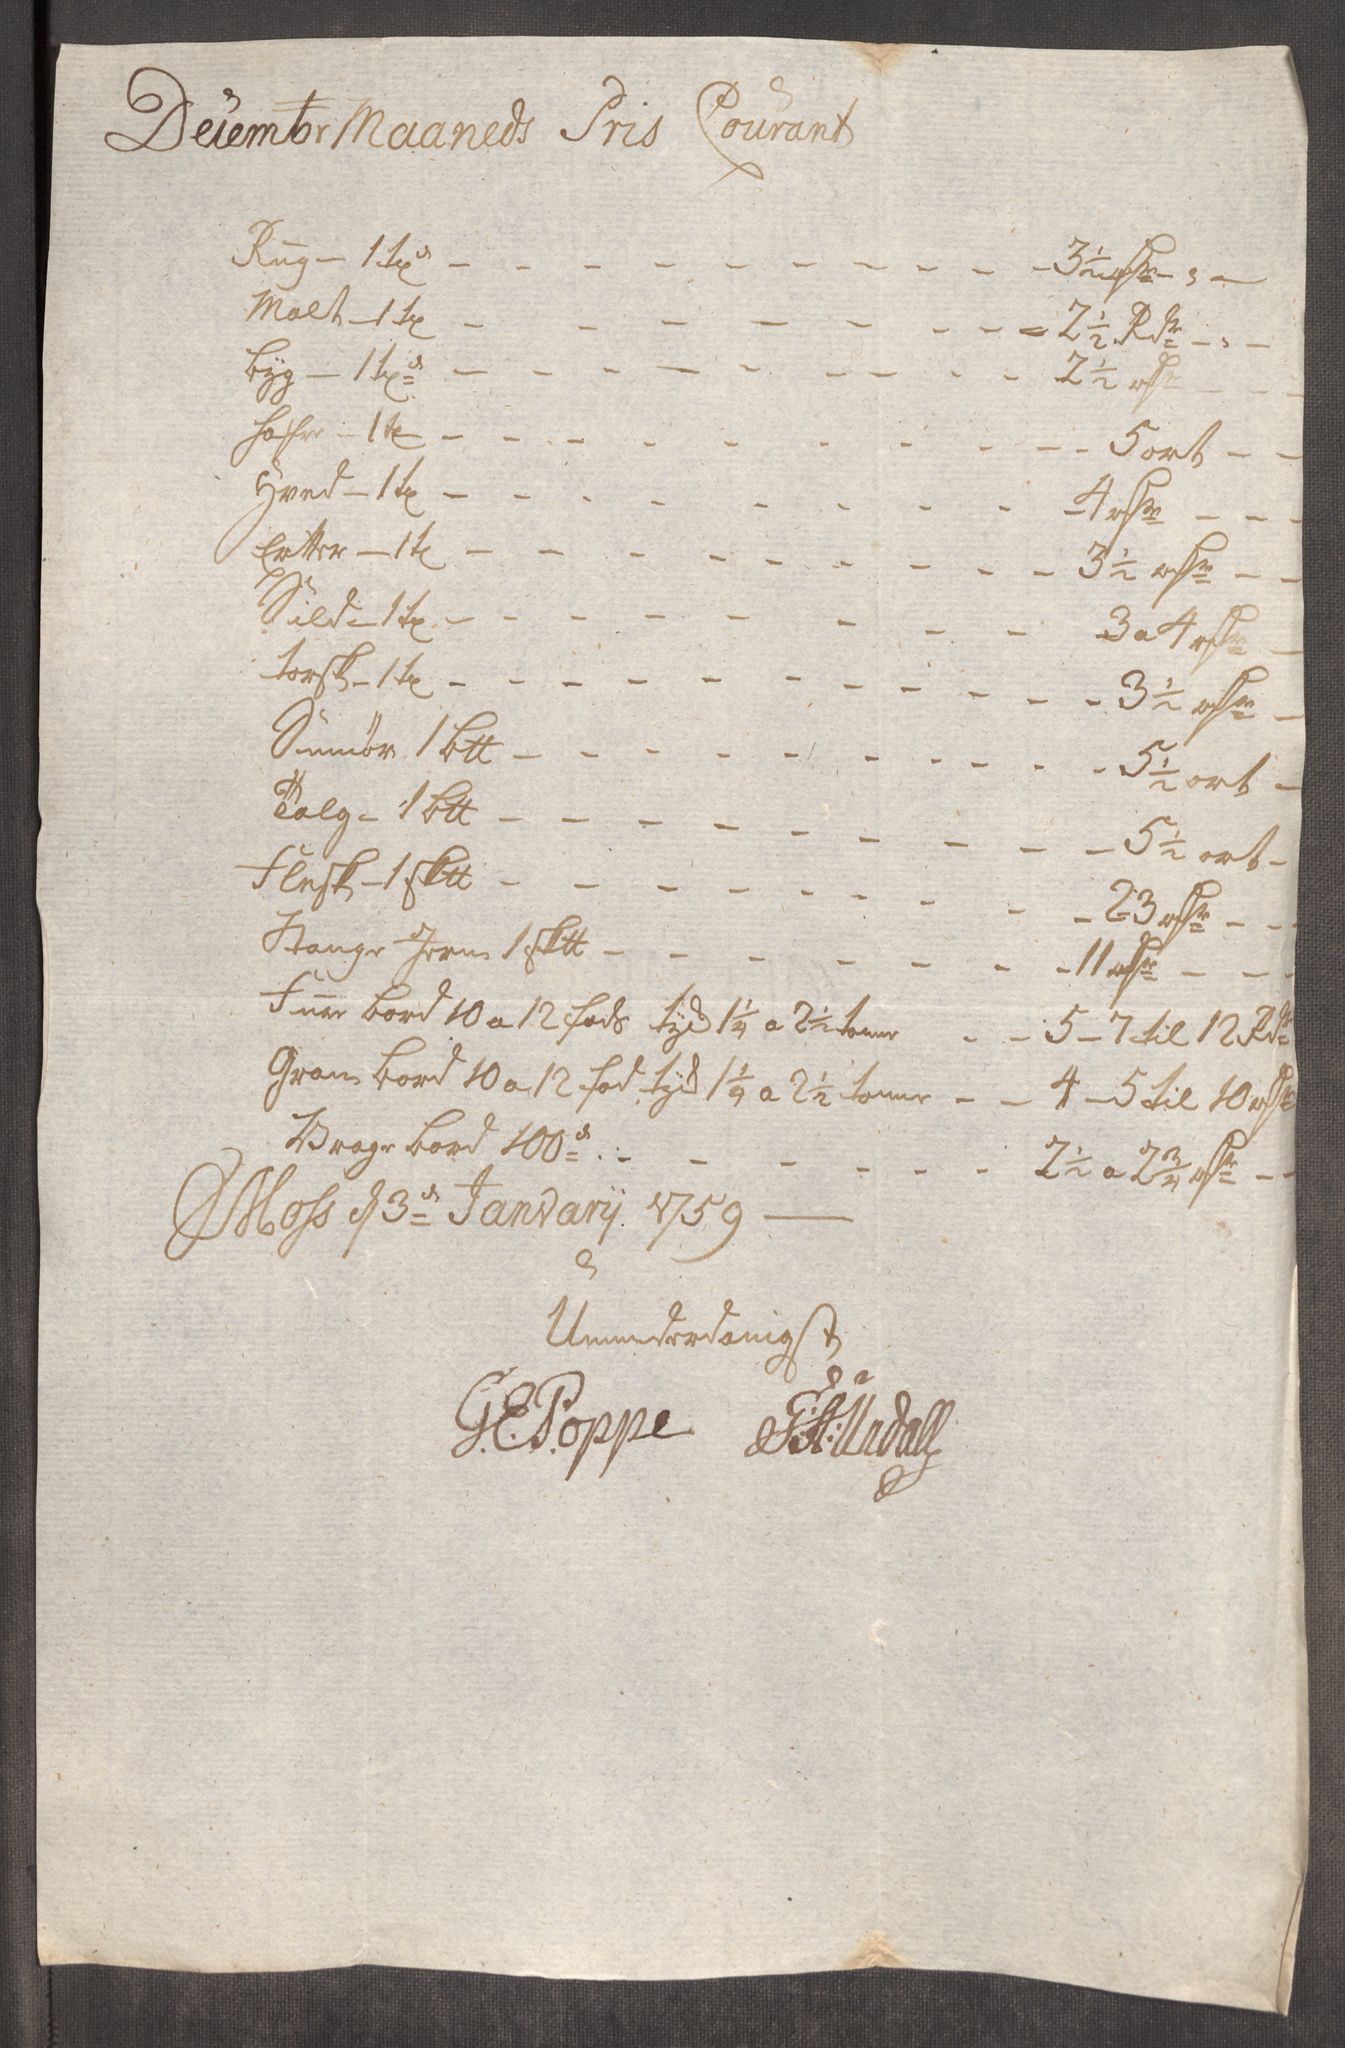 Decembr Maaneds Pris Courant
Rug - 1 tøe - - - 3 1/2 rdr - , -
Malt - 1 tø - - - 2 1/2 Rdr - , -
byg - 1 tøe - - - 2 1/2 rdr - - -
hafre - 1 tø - - - 5 ort - -
Hved - 1 tø - - - 4 rdr - - -
Ertter - 1 tø - - - 3 1/2 rdr - -
Sild - 1 tø - - - 3 a 4 rdr -
torsk - 1 tø - - - 3 1/2 rdr -
Smiör 1 btt - - - 5 1/2 ort -
Talg - 1 btt - - - 5 1/2 ort -
Flesk - 1 sktt - - - 23 rdr - - -
Stange Jern 1 sktt - - - 11 rdr - - -
Furr bord 10 a 12 fods tyk 1 1/4 a 2 1/2 tomr - - 5 - 7 til 12 Rdr
Gran bord 10 a 12 fod tyk 1 1/4 a 2 1/2 tomr - - 4 - 5 til 10 rdr
Vrage bord 100de - - - 2 1/2 a 2 3/4 rdr - -
Moss d 3de Janvarij 1759 —
Unnderdanigst
G.E. Poppe F.H. Urdall